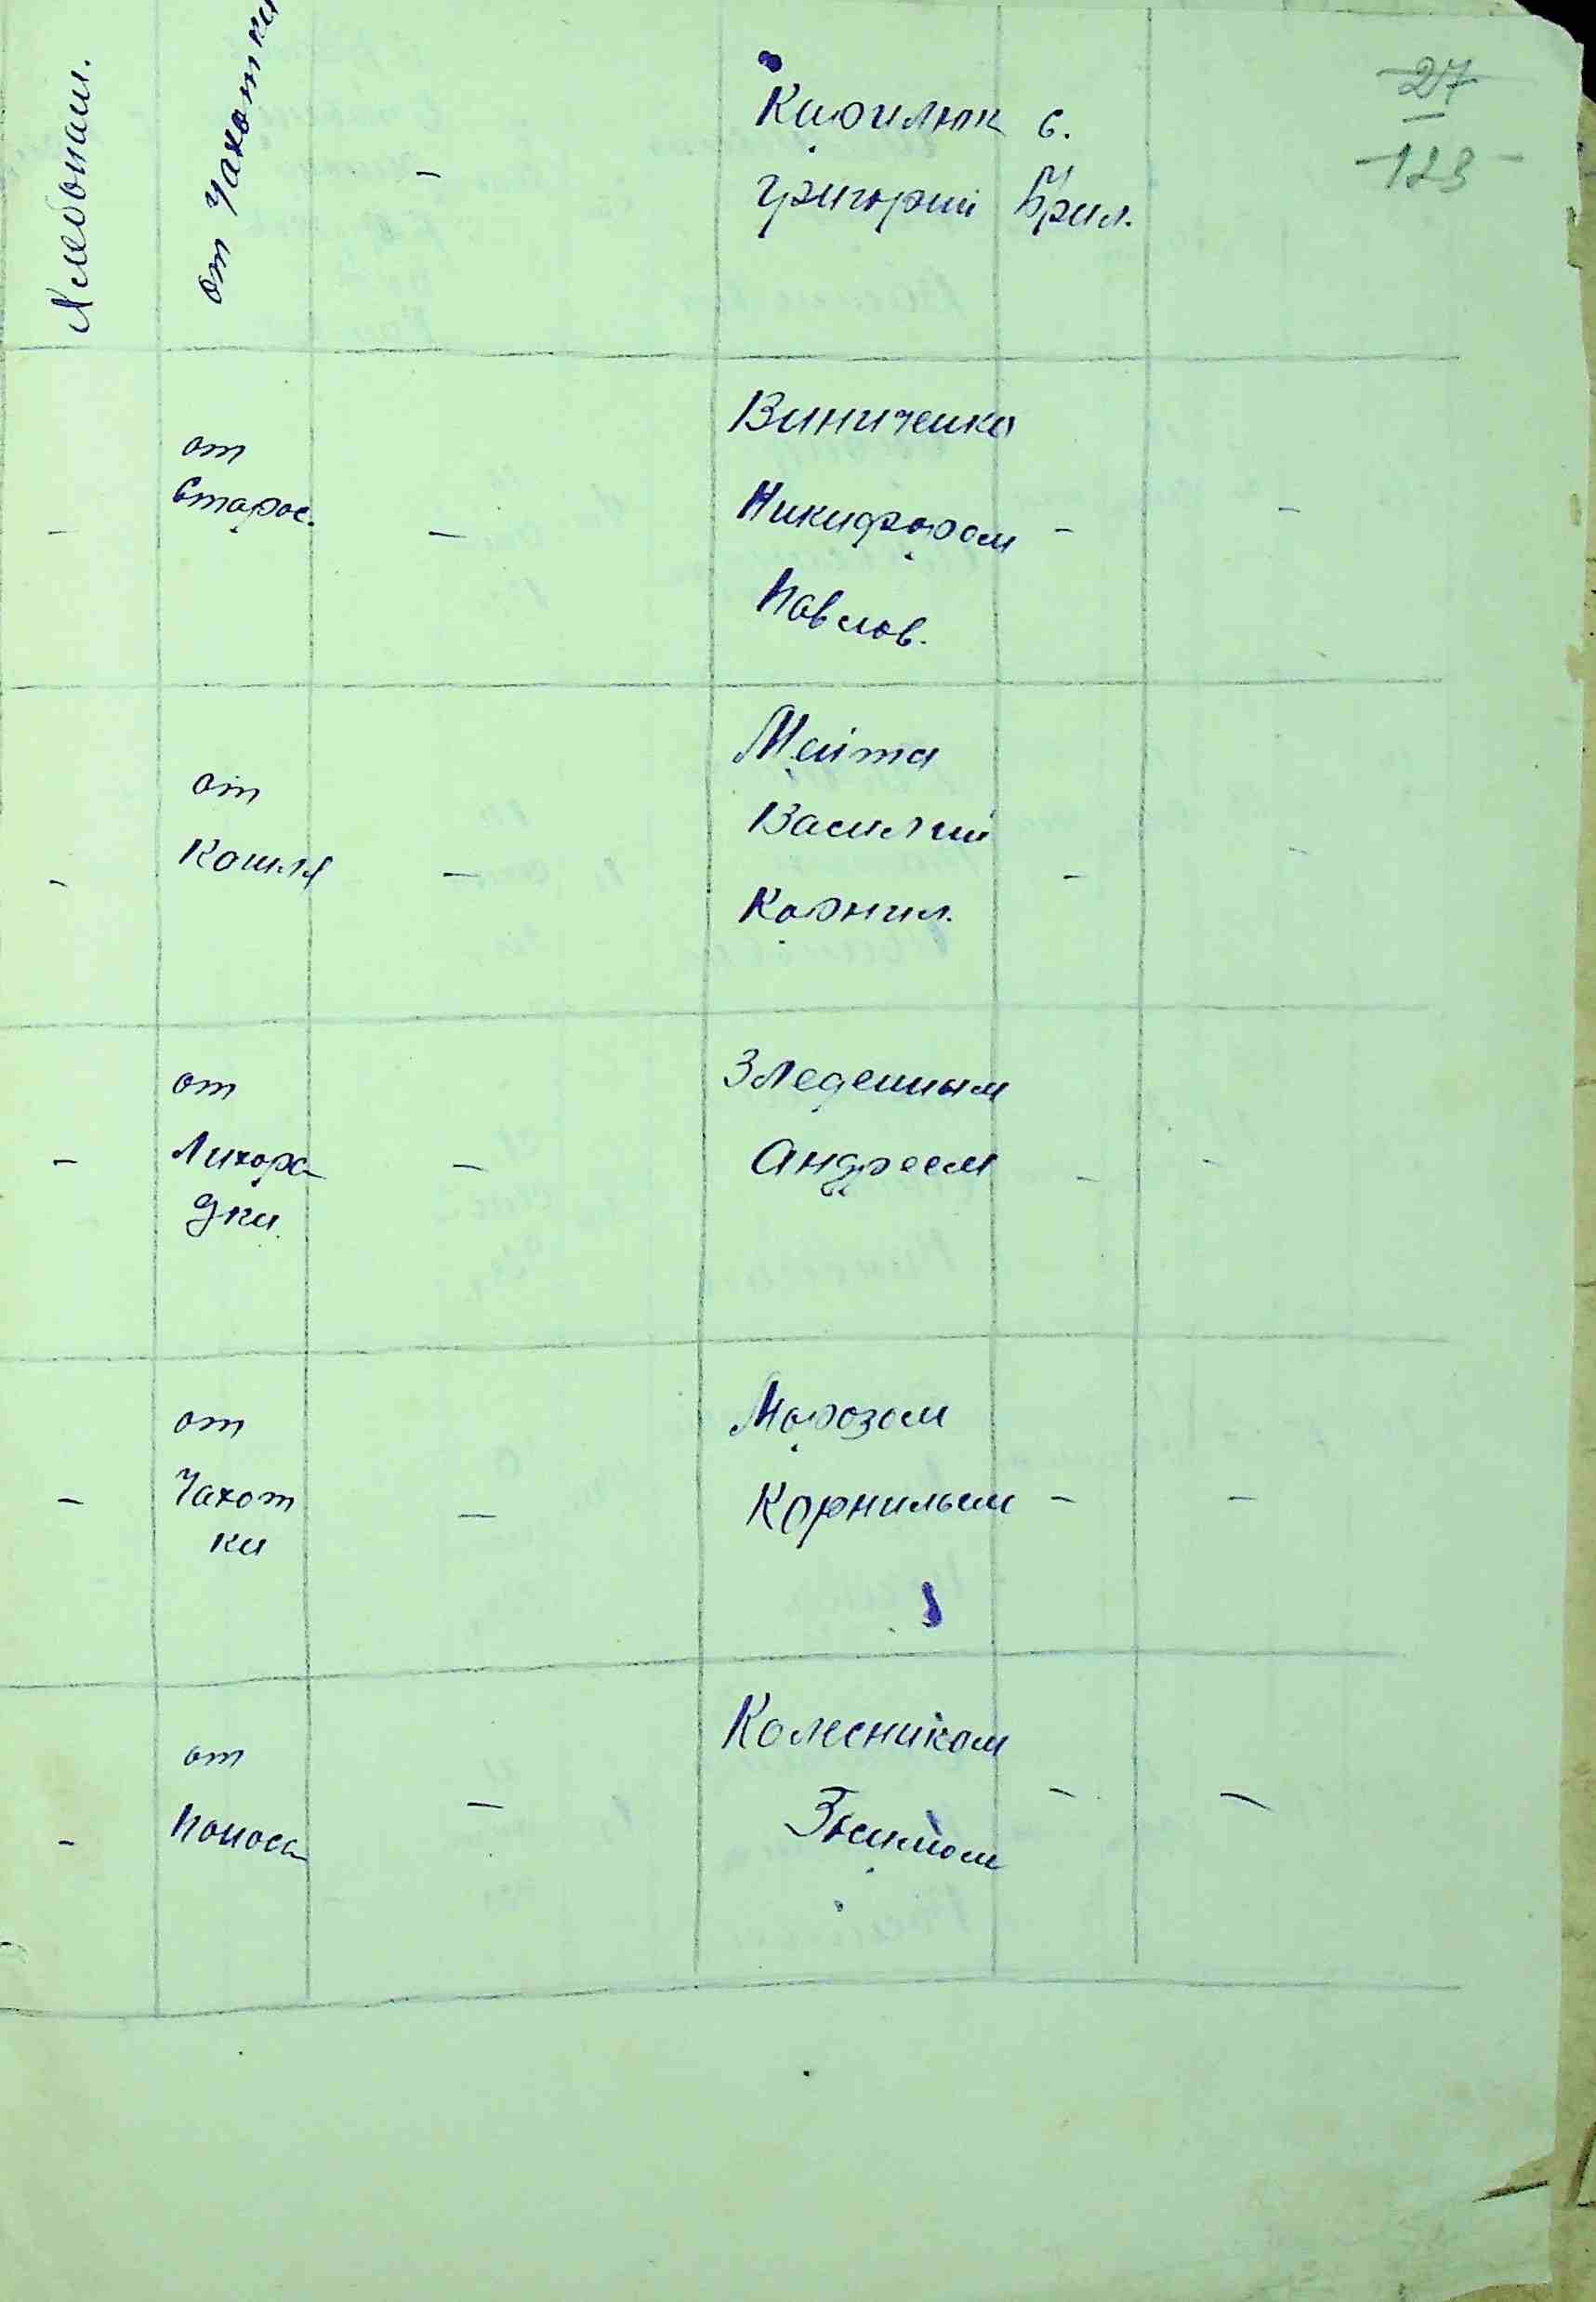 27
123
Хлебопаш.
от Чахотки
-
Кирилюк с.
Григорий Брил.
-
от
Старос.
-
Виниченко
Никифором
Павлов.
-
-
-
от
Кошля
-
Мейта
Василий
Корнил.
-
-
-
от
Лихора
дки
-
Зледенным
Андреем
-
-
-
от
Чахот
ки
-
Морозом
Корнильем
-
-
-
от
Поноса
-
Колесником
-
-